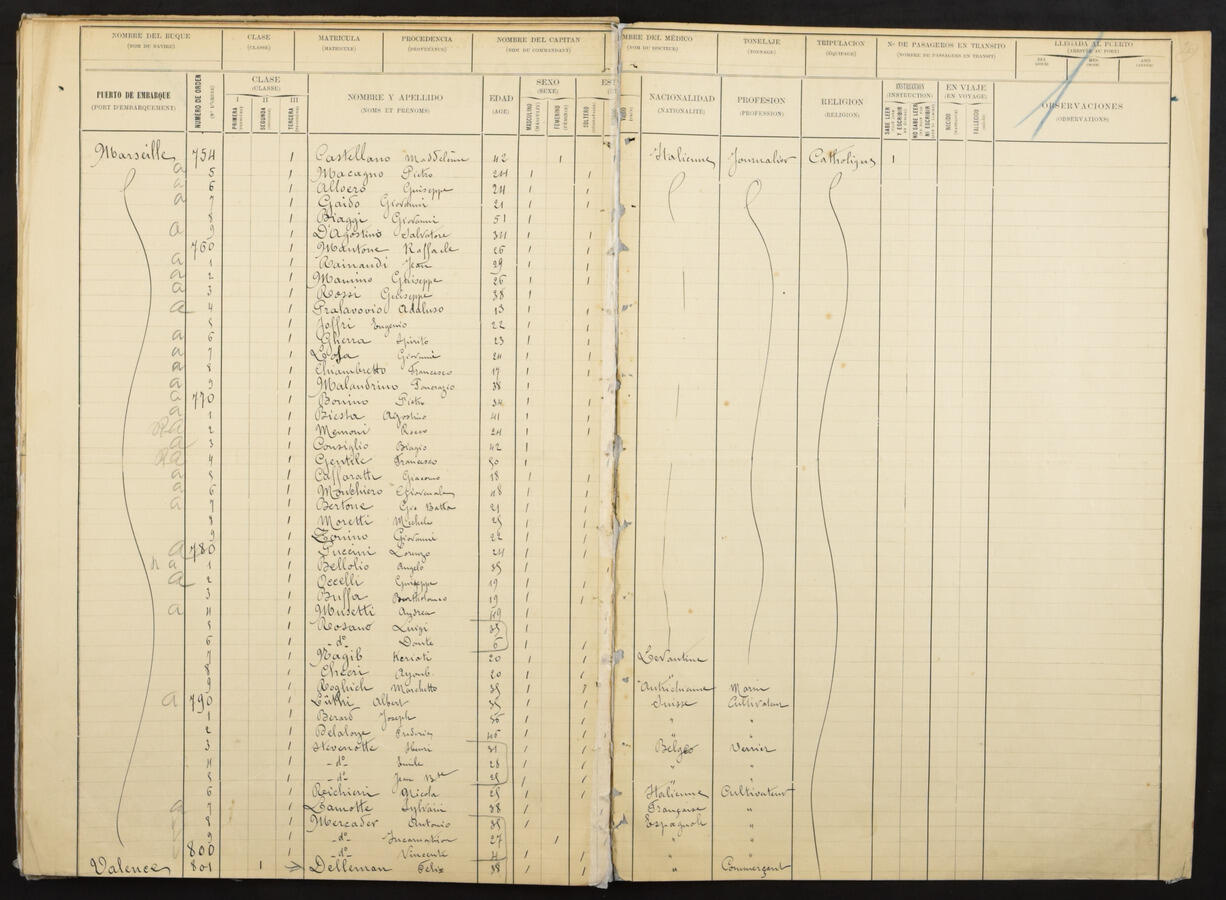 NOMBRE DEL BUQUE
(NOM DU NAVIRE)
CLASE
(CLASSE)
MATRICULA
(MATRICULE)
PROCEDENCIA
(PROVENANCE)
NOMBRE DEL CAPITAN
(NOM DU COMMANDANT)
MBRE DEL MÉDICO
(NOM DU DOCTEUR)
TONELAJE
(TONNAGE)
TRIPULACION
(ÉQUIPAGE)
Nº DE PASAGEROS EN TRANSITO
(NOMBRE DE PASSAGERS EN TRANSIT)
LLEGADA AL PUERTO
(ARRIVÉE AU PORT)
PUERTO DE EMBARQUE
(PORT D'EMBARQUEMENT)
NÚMERO DE ORDEN
CLASE
(CLASSE)
I PRIMERA
II SEGUNDA
III TERCERA
NOMBRE Y APELLIDO
(NOMS ET PRÉNOMS)
EDAD
(AGE)
SEXO
(SEXE)
MASCULINO
FEMENINO
SOLTERO
NACIONALIDAD
(NATIONALITÉ)
PROFESION
(PROFESSION)
RELIGION
(RELIGION)
INSTRUCCION
(INSTRUCTION)
EN VIAJE
(EN VOYAGE)
NACIDO
FALLECIDO
OBSERVACIONES
(OBSERVATIONS)
Marseille 754 1 Castellano Maddeleine 42 1 Italienne Journalier Catholique 1
a 5 1 Macagno Pietro 24 1 1
a 6 1 Alloero Guiseppe 24 1 1
a 7 1 Gaido Giovanni 21 1 1
8 1 Biaggi Giovanni 51 1
a 9 1 D'Agostino Salvatore 34 1 1
760 1 Mantone Raffaele 26 1 1
a 1 1 Rainaudi Jean 29 1 1
a 2 1 Mamino Guiseppe 26 1 1
a 3 1 Rossi Guiseppe 38 1 1
a 4 1 13 1 1
5 1 Joffri Eugenio 22 1 1
a 6 1 Gherra Spirito 23 1 1
a 7 1 Giovanni 24 1 1
a 8 1 Chiambretto Francesco 17 1 1
a 9 1 Malandrino Pancrazio 38 1
a 770 1 Bonino Pietro 34 1 1
a 1 1 Biesta Agostino 41 1 1
a 2 1 Memoni Rocco 24 1 1
a 3 1 Consiglio Biagio 42 1
a 4 1 Gentile Francesco 50 1
a 5 1 Caffaratti Giacomo 18 1 1
a 6 1 Monchiero 48 1 1
a 7 1 Bertone Gio Batta 21 1 1
8 1 Moretti Michele 25 1 1
9 1 Giovanni 22 1 1
a 780 1 Puccini Lorenzo 24 1 1
a 1 1 Bellolio Angelo 35 1
a 2 1 Occelli Guiseppe 19 1 1
3 1 Buffa Bartholomeo 19 1 1
a 4 1 Musetti Andrea 49 1
5 1 Rosano Luigi 35 1
6 1 - dº - Donte 6 1 1
7 1 Magib Keriati 20 1 1 Levantine
8 1 Checri Ayoub 20 1 1
9 1 Roghich Marchetto 35 1 1 Autrichienne
a 790 1 Lüthi Albert 35 1 1 Suisse Cultivateur
1 1 Berard Joseph 56 1 1 " "
2 1 Frederic 46 1 1 " "
3 1 Stevenotte Henri 31 1 1 Belge Verrier
4 1 - dº - Emile 28 1 1 " "
5 1 - dº - Jean Bte 25 1 1 " "
6 1 Richieri Nicola 25 1 1 Italienne Cultivateur
a 7 1 Lamotte Sylvain 38 1 Française "
8 1 Mercader Antonio 35 1 Espagnole "
9 - dº - Incarnation 27 1 " "
800 - dº - Vincente 4 1 1 " "
Valence 801 1 Delleman Felix 38 1 1 " Commerçant